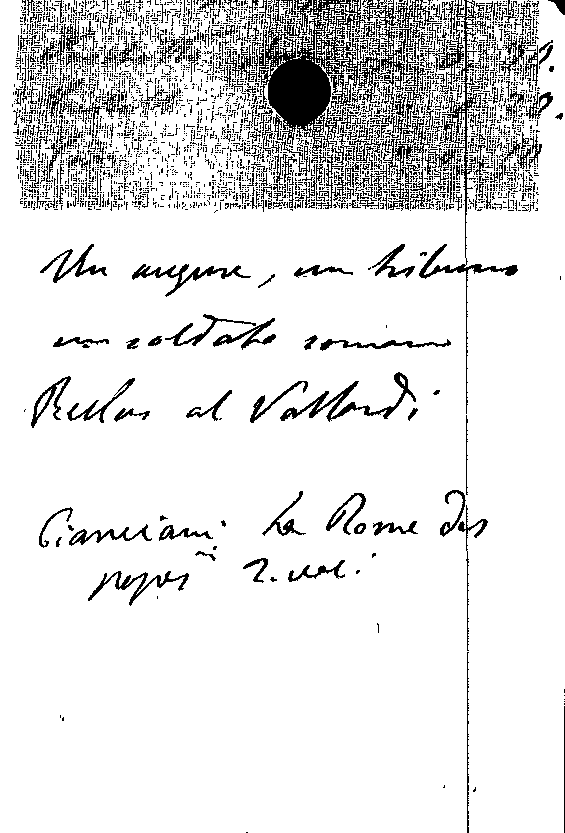 Un augure, un tribuno
un soldato romano
al Vallardi
Pianciani La Rome des
papes 2. vol.